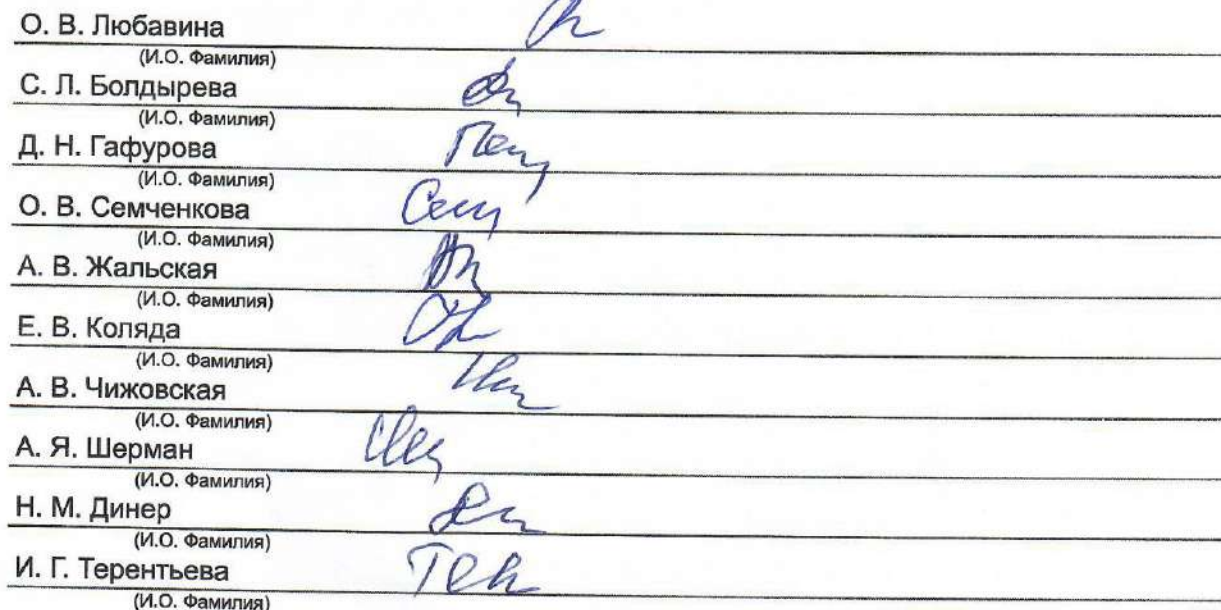 О. В. Любавина
(И.О. Фамилия)
С. Л. Болдырева
(И.О. Фамилия)
Д. Н. Гафурова
(И.О. Фамилия)
О. В. Семченкова
(И.О. Фамилия)
А. В. Жальская
(И.О. Фамилия)
Е. В. Коляда
(И.О. Фамилия)
А. В. Чижовская
(И.О. Фамилия)
А. Я. Шерман
(И.О. Фамилия)
Н. М. Динер
(И.О. Фамилия)
И. Г. Терентьева
(И.О. Фамилия)